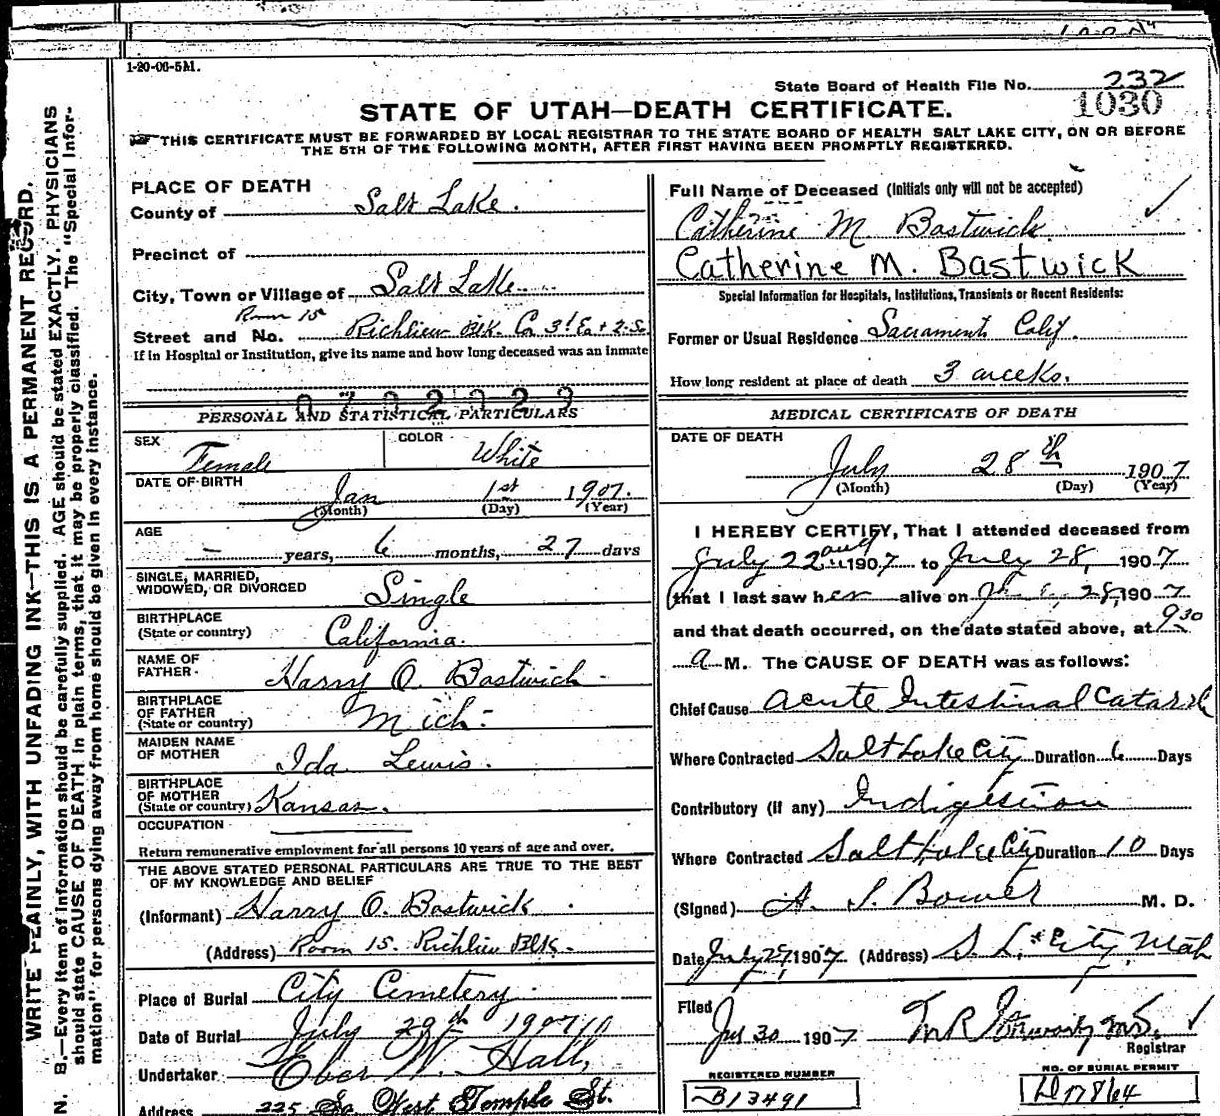 1-20-06-5M.
State Board of Health File No. 232
1030
STATE OF UTAH—DEATH CERTIFICATE.
THIS CERTIFICATE MUST BE FORWARDED BY LOCAL REGISTRAR TO THE STATE BOARD OF HEALTH SALT LAKE CITY, ON OR BEFORE
THE 5TH OF THE FOLLOWING MONTH, AFTER FIRST HAVING BEEN PROMPTLY REGISTERED.
WRITE PLAINLY, WITH UNFADING INK—THIS IS A PERMANENT RECORD.
N. B.—Every item of information should be carefully supplied. AGE should be stated EXACTLY. PHYSICIANS
should state CAUSE OF DEATH in plain terms, that it may be properly classified. The "Special Infor-
mation" for persons dying away from home should be given in every instance.
PLACE OF DEATH
County of Salt Lake.
Precinct of
City, Town or Village of Salt Lake
Room 15
Street and No. Richlieu Blk. Co 3d Ea + 2 So
If in Hospital or Institution, give its name and how long deceased was an Inmate
PERSONAL AND STATISTICAL PARTICULARS
SEX Female COLOR White
DATE OF BIRTH Jan 1st 1907.
(Month) (Day) (Year)
AGE – years, 6 months, 27 days
SINGLE, MARRIED,
WIDOWED, OR DIVORCED Single
BIRTHPLACE
(State or country) California.
NAME OF
FATHER Harry O. Bastwick
BIRTHPLACE
OF FATHER
(State or country) Mich.
MAIDEN NAME
OF MOTHER Ida Lewis.
BIRTHPLACE
OF MOTHER
(State or country) Kansas.
OCCUPATION
Return remunerative employment for all persons 10 years of age and over.
THE ABOVE STATED PERSONAL PARTICULARS ARE TRUE TO THE BEST
OF MY KNOWLEDGE AND BELIEF
(Informant) Harry O. Bastwick
(Address) Room 15. Richlieu Blk.
Place of Burial City Cemetery
Date of Burial July 29th 1907
Undertaker Eber W. Hall,
Address 225 So West Temple St.
Full Name of Deceased (Initials only will not be accepted)
Catherine M. Bastwick
Catherine M. Bastwick
Special Information for Hospitals, Institutions, Transients or Recent Residents:
Former or Usual Residence Sacramento Calif.
How long resident at place of death 3 weeks.
MEDICAL CERTIFICATE OF DEATH
DATE OF DEATH
July 28th 1907
(Month) (Day) (Year)
I HEREBY CERTIFY, That I attended deceased from
July 22 1907 to July 28, 1907
that I last saw her alive on 28, 1907
and that death occurred, on the date stated above, at 9 30
a M. The CAUSE OF DEATH was as follows:
Chief Cause Acute Intestinal Catarrh
Where Contracted Salt Lake City Duration 6 Days
Contributory (if any) Indigestion
Where Contracted Salt Lake City Duration 10 Days
(Signed) A. S. Bower M. D.
Date July 29, 1907. (Address) S. L. City, Utah
Filed
Jul 30 1907
Registrar
REGISTERED NUMBER
B13491
NO. OF BURIAL PERMIT
D17864